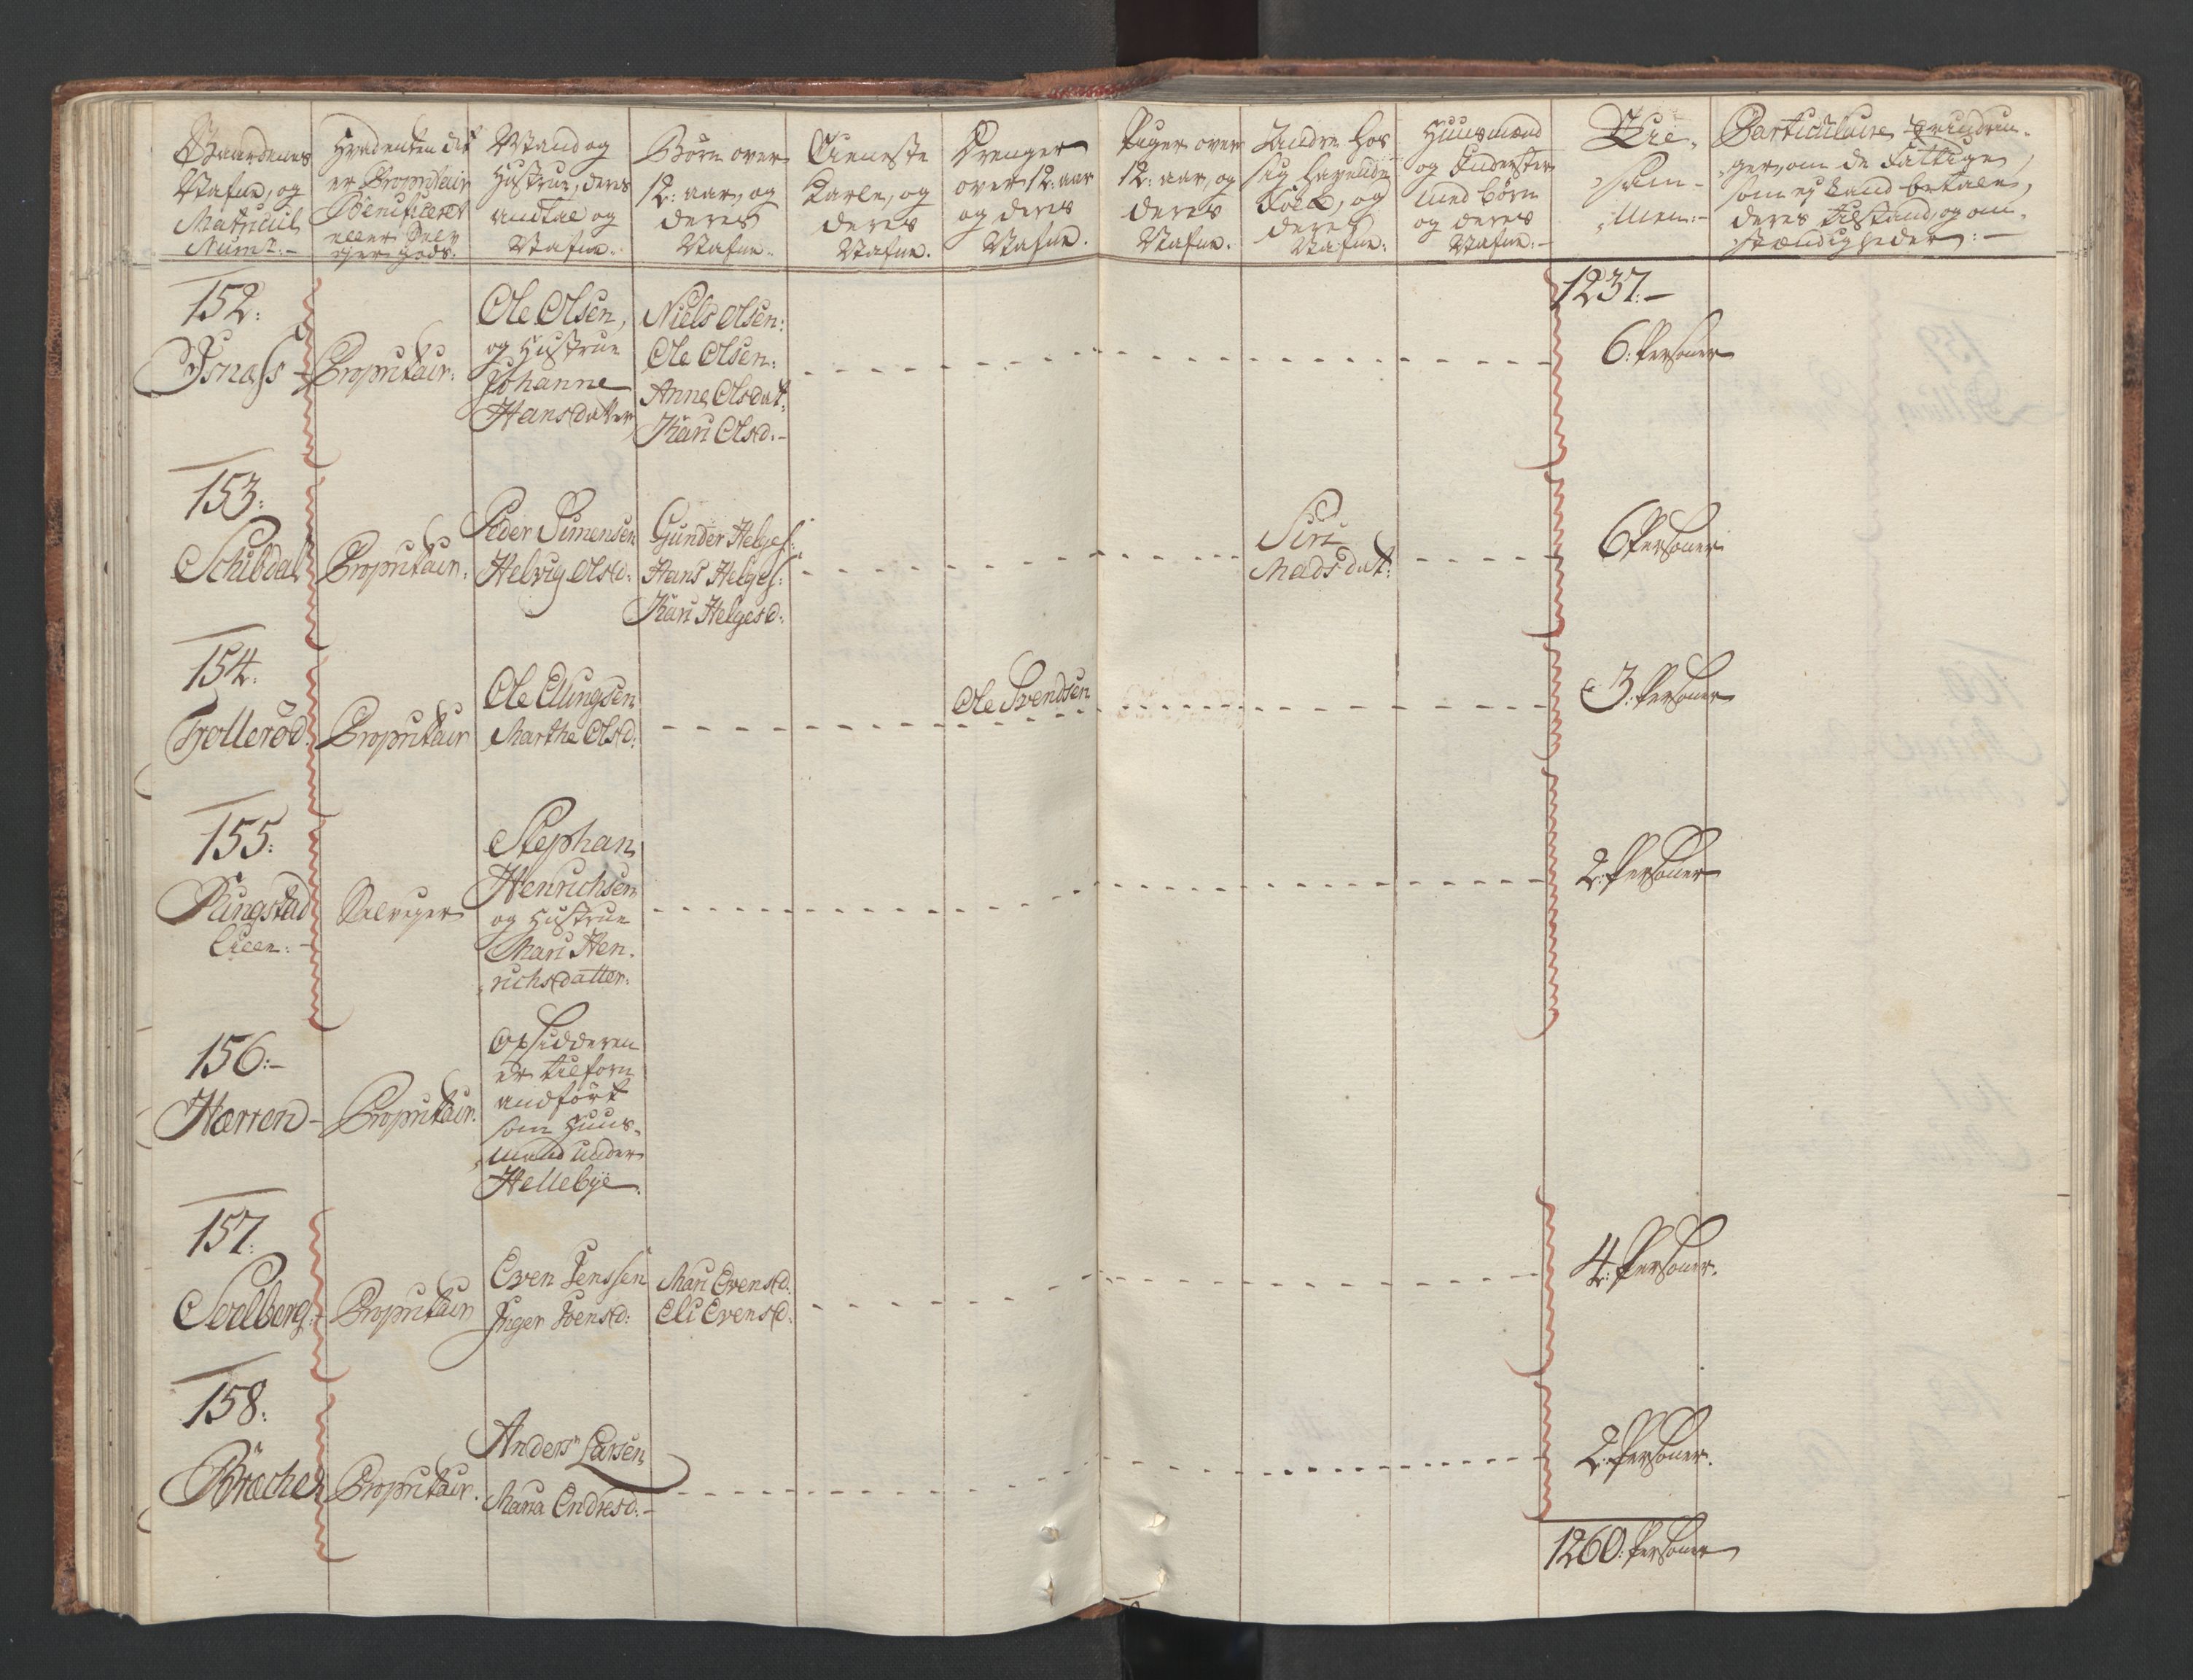 Gaardenes
Nafne, og
Matricul
Num:r:-
Hvadenten det
er Propritair
Beneficeret
eller Selv
ejer gods.
Mand og
Hustrue, deres
andtal og
Nafne.
Børn over
12: aar, og
deres
Nafne.
Tieneste
Karle, og
deres
Nafne.
Drenger
over 12: aar
og deres
Nafne.
Piger over
12: aar, og
deres
Nafne.
Andre hos
sig havende
Folk, og
deres
Nafne:
Huusmænd
og Inderster
med børn
og deres
Nafne:-
Til-
sam-
men:-
Particulaire Erindrin-
ger, om de Fattige,
som ej kand betale,
deres tilstand, og om-
stændigheder:-
1237:-
152:
Isnass
Propritair:
Ole Olsen,
og Hustrue
Johanne
Hansdatter
Niels Olsen:
Ole Olsen:
Anne Olsdat:
Kari Olsd:-
6: Personer
153:
Schibdal
Propritair:
Peder Simensen
Helvig Olsd:
Gunder Helges:
Hans Helges:
Kari Helgesd:
Siri
Madsdat:
6 Personer
154:
Trollerød
Propritair
Ole Ellingsen
Marthe Olsd:
Ole Svendsen
3: Personer
155:
Ringstad
Lieen:-
Selvejer
Stephan
Henrichsen
og Hustrue
Mari Hen-
richsdatter:
2: Personer
156:-
Hærren-
Propritair:
Opsidderen
er tilforn
andført
som Huus-
mand under
Hellebye.
157:
Soelberg:
Propritair
Even Jenssen
Inger Joensd:
Mari Evensd:
Eli Evensd:
4: Personer.
158:
Bræche
Propritair.
Anders Larsen
Maria Endresd:-
2: Personer.
1260: Personer